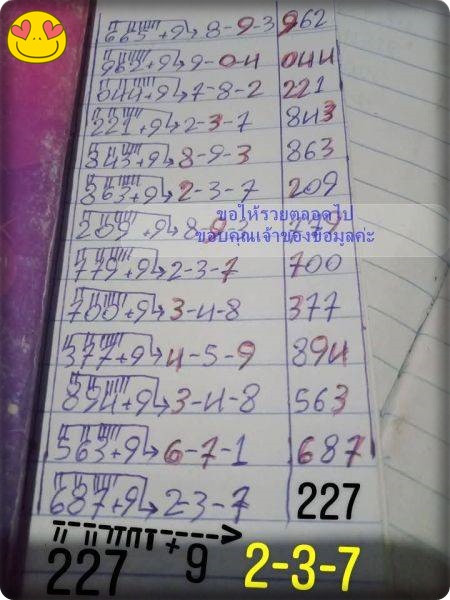 663 +9 → 8-9-3 962
962+9 → 9-0-4 044
044+9 → 7-8-2 221
221 +9 → 2-3-7 843
843+9 → 8-9-3 863
863+9 → 2-3-7 209
ขอให้รวยตลอดไป
209 +9 → 8-9-3 779
ขอบคุณเจ้าของข้อมูลคะ
779 +9 → 2-3-7 700
700+9 → 3-4-8 377
377+9 → 4-5-9 894
894+9 → 3-4-8 563
563+9 → 6-7-1 687
687+9 → 2-3-7 227
227 +9 2-3-7